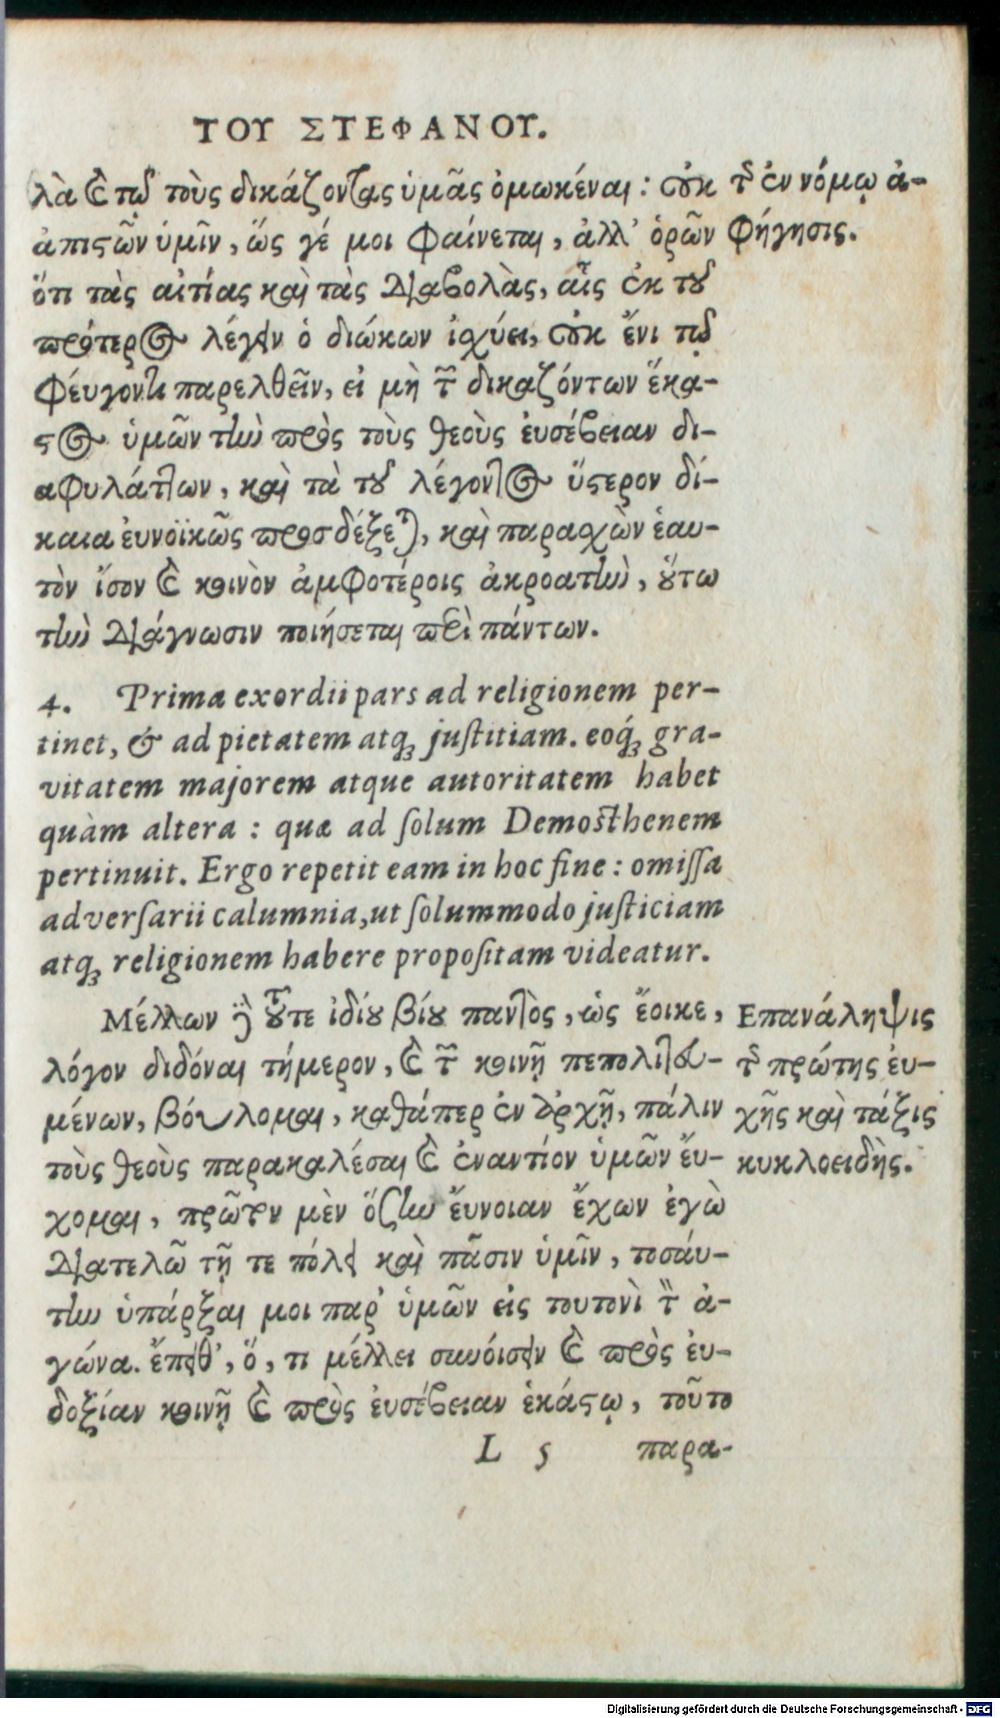 ΤΟΥ ΣΤΕΦΑΝΟΥ.
λὰ καὶ τῷ τοὺς δικάζοντας ὑμᾶς ὀμωκέναι : οὐκ
ἀπιστῶν ὑμῖν, ὥς γέ μοι φαίνεται, ἀλλ' ὁρῶν
ὅτι τὰς αἰτίας καὶ τὰς διαβολὰς, αἷς ἐκ τοῦ
πρότερος λέγειν ὁ διώκων ἰσχύει, οὐκ ἔνι τῷ
φεύγοντι παρελθεῖν, εἰ μὴ τῶν δικαζόντων ἕκα-
στος ὑμῶν τὴν πρὸς τοὺς θεοὺς ἐυσέβειαν δι-
αφυλάττων, καὶ τὰ τοῦ λέγοντος ὕστερον δί-
καια ἐυνοϊκῶς προσδέξεται, καὶ παρασχὼν ἑαυ-
τὸν ἴσον καὶ κοινὸν ἀμφοτέροις ἀκροατὴν, οὕτω
τὴν διάγνωσιν ποιήσεται περὶ πάντων.
τῆς ἐν νόμῳ ἀ-
φήγησις.
4. Prima exordii pars ad religionem per-
tinet, & ad pietatem atq; justitiam. eoq́; gra-
vitatem majorem atque autoritatem habet
quàm altera : quæ ad solum Demosthenem
pertinuit. Ergo repetit eam in hoc fine : omissa
adversarii calumnia, ut solummodo justiciam
atq; religionem habere propositam videatur.
Μέλλων δὲ τοῦτε ἰδίου βίου παντὸς, ὡς ἔοικε,
λόγον διδόναι τήμερον, καὶ τῶν κοινῇ πεπολιτευ-
μένων, βούλομαι, καθάπερ ἐν ἀρχῇ, πάλιν
τοὺς θεοὺς παρακαλέσαι καὶ ἐναντίον ὑμῶν ἔυ-
χομαι, πρῶτον μὲν ὅσην ἔυνοιαν ἔχων ἐγὼ
διατελῶ τῇ τε πόλει καὶ πᾶσιν ὑμῖν, τοσάυ-
την ὑπάρξαι μοι παρ' ὑμῶν εἰς τουτονὶ τὸν ἀ-
γώνα. ἔπειθ', ὅ, τι μέλλει συνοίσειν καὶ πρὸς ἐυ-
δοξίαν κοινῇ καὶ πρὸς ἐυσέβειαν ἑκάστῳ, τοῦτο
Επανάληψις
τῆς πρώτης ἐυ-
χῆς καὶ τάξις
κυκλοειδὴς.
L 5 παρα-
Digitalisierung gefördert durch die Deutsche Forschungsgemeinschaft - DFG